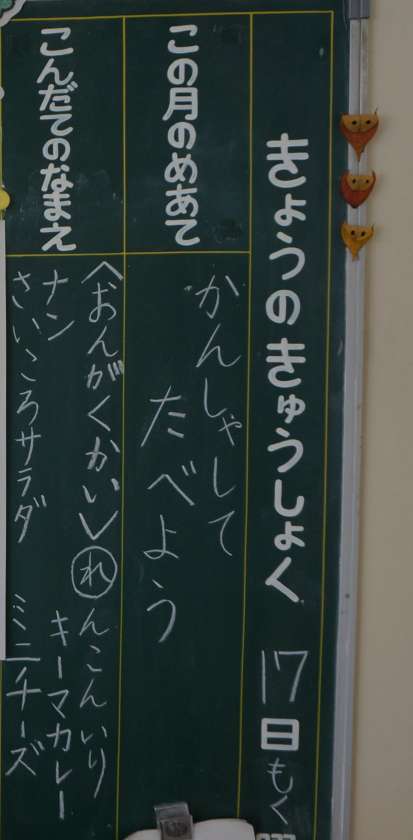 きょうのきゅうしょく 17日 もく
この月のめあて
かんしゃして
たべよう
こんだてのなまえ
〈おんがくかい〉 れんこんいり
ナン キーマカレー
さいころサラダ ミニチーズ